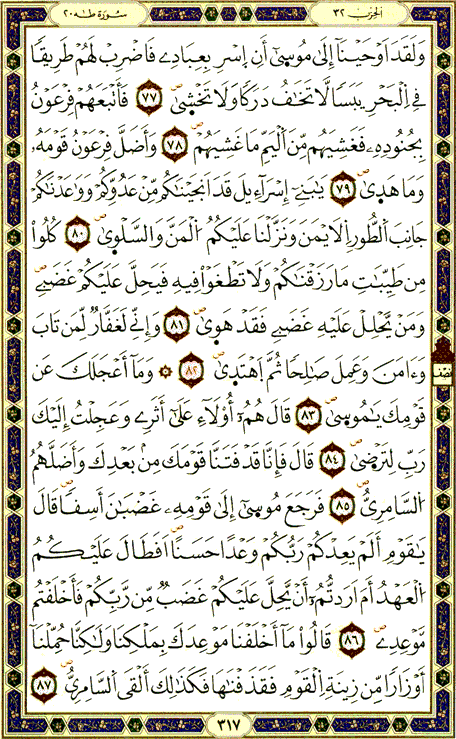 الحزب ٣٢ سورة طه ٢٠
وَلَقَدَ اَوْحَيْنَآ إِلَىٰ مُوسَىٰٓ أَنِ اِسْرِ بِعِبَادِے فَاضْرِبْ لَهُمْ طَرِيقٗا
فِے اِلْبَحْرِ يَبَسٗا لَّا تَخَٰفُ دَرَكٗا وَلَا تَخْشَىٰ ٧٧ فَأَتْبَعَهُمْ فِرْعَوْنُ
بِجُنُودِهِۦ فَغَشِيَهُم مِّنَ اَلْيَمِّ مَا غَشِيَهُمْ ٧٨ وَأَضَلَّ فِرْعَوْنُ قَوْمَهُۥ
وَمَا هَدَىٰ ٧٩ يَٰبَنِےٓ إِسْرَآءِيلَ قَدَ اَنجَيْنَٰكُم مِّنْ عَدُوِّكُمْ وَوَٰعَدْنَٰكُمْ
جَانِبَ اَلطُّورِ اِلَايْمَنَ وَنَزَّلْنَا عَلَيْكُمُ اُلْمَنَّ وَالسَّلْوَىٰ ٨٠ كُلُواْ
مِن طَيِّبَٰتِ مَا رَزَقْنَٰكُمْ وَلَا تَطْغَوْاْ فِيهِ فَيَحِلَّ عَلَيْكُمْ غَضَبِے
وَمَنْ يَّحْلِلْ عَلَيْهِ غَضَبِے فَقَدْ هَوَىٰ ٨١ وَإِنِّے لَغَفَّارٞ لِّمَن تَابَ
وَءَامَنَ وَعَمِلَ صَٰلِحٗا ثُمَّ اَهْتَدَىٰ ٨٢ ۞ وَمَآ أَعْجَلَكَ عَن
نصف
قَوْمِكَ يَٰمُوسَىٰ ٨٣ قَالَ هُمُۥٓ أُوْلَآءِ عَلَىٰٓ أَثَرِے وَعَجِلْتُ إِلَيْكَ
رَبِّ لِتَرْضَىٰ ٨٤ قَالَ فَإِنَّا قَدْ فَتَنَّا قَوْمَكَ مِنۢ بَعْدِكَ وَأَضَلَّهُمُ
اُلسَّامِرِيُّ ٨٥ فَرَجَعَ مُوسَىٰٓ إِلَىٰ قَوْمِهِۦ غَضْبَٰنَ أَسِفٗا قَالَ
يَٰقَوْمِ أَلَمْ يَعِدْكُمْ رَبُّكُمْ وَعْدًا حَسَنًا اَفَطَالَ عَلَيْكُمُ
اُلْعَهْدُ أَمَ اَرَدتُّمُۥٓ أَنْ يَّحِلَّ عَلَيْكُمْ غَضَبٞ مِّن رَّبِّكُمْ فَأَخْلَفْتُم
مَّوْعِدِے ٨٦ قَالُواْ مَآ أَخْلَفْنَا مَوْعِدَكَ بِمَلْكِنَا وَلَٰكِنَّا حُمِّلْنَآ
أَوْزَارٗا مِّن زِينَةِ اِلْقَوْمِ فَقَذَفْنَٰهَا فَكَذَٰلِكَ أَلْقَى اَلسَّامِرِيُّ ٨٧
٣١٧